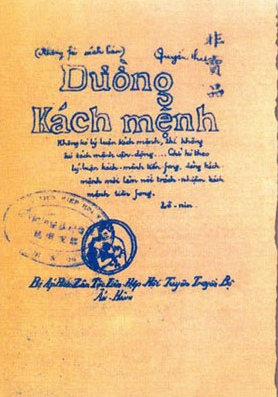 (Không fải sách bán)
Quyển thứ
非賣品
Đường
Kách mệnh
Không có lý luận kách mệnh, thì không
có kách mệnh vận-động.... Chỉ có theo
lý luận kách-mệnh tiền fong, đảng kách
mệnh mới làm nổi trách-nhiệm kách
mệnh tiền fong.
Lê-nin
Bị Áp Bức Zân Tộc Liên Hợp Hội Tuyên Truyền Bộ